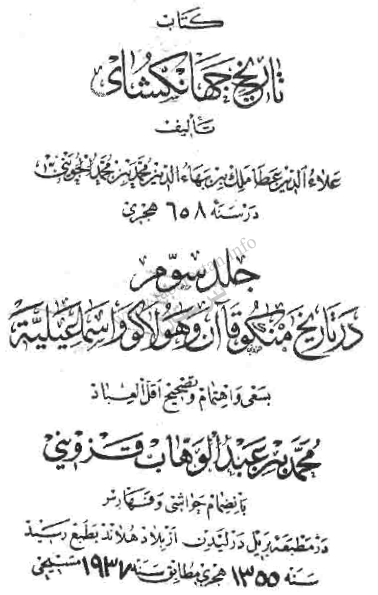 کتاب
تاریخ جهانگشای
تألیف
علاءالدین عطا ملک بن بهاءالدین محمد بن محمد الجوینی
در سنه ۶۵۸ هجری
جلد سوم
در تاریخ منکوقاآن و هولاکو و اسماعیلیة
بسعی و اهتمام و تصحیح اقل العباد
محمد بن عبد الوهاب قزوینی
بانضمام حواشی و فهارس
در مطبعه بریل در لیدن از بلاد هلاند بطبع رسید
سنه ۱۳۵۵ هجری مطابق سنه ۱۹۳۷ مسیحی